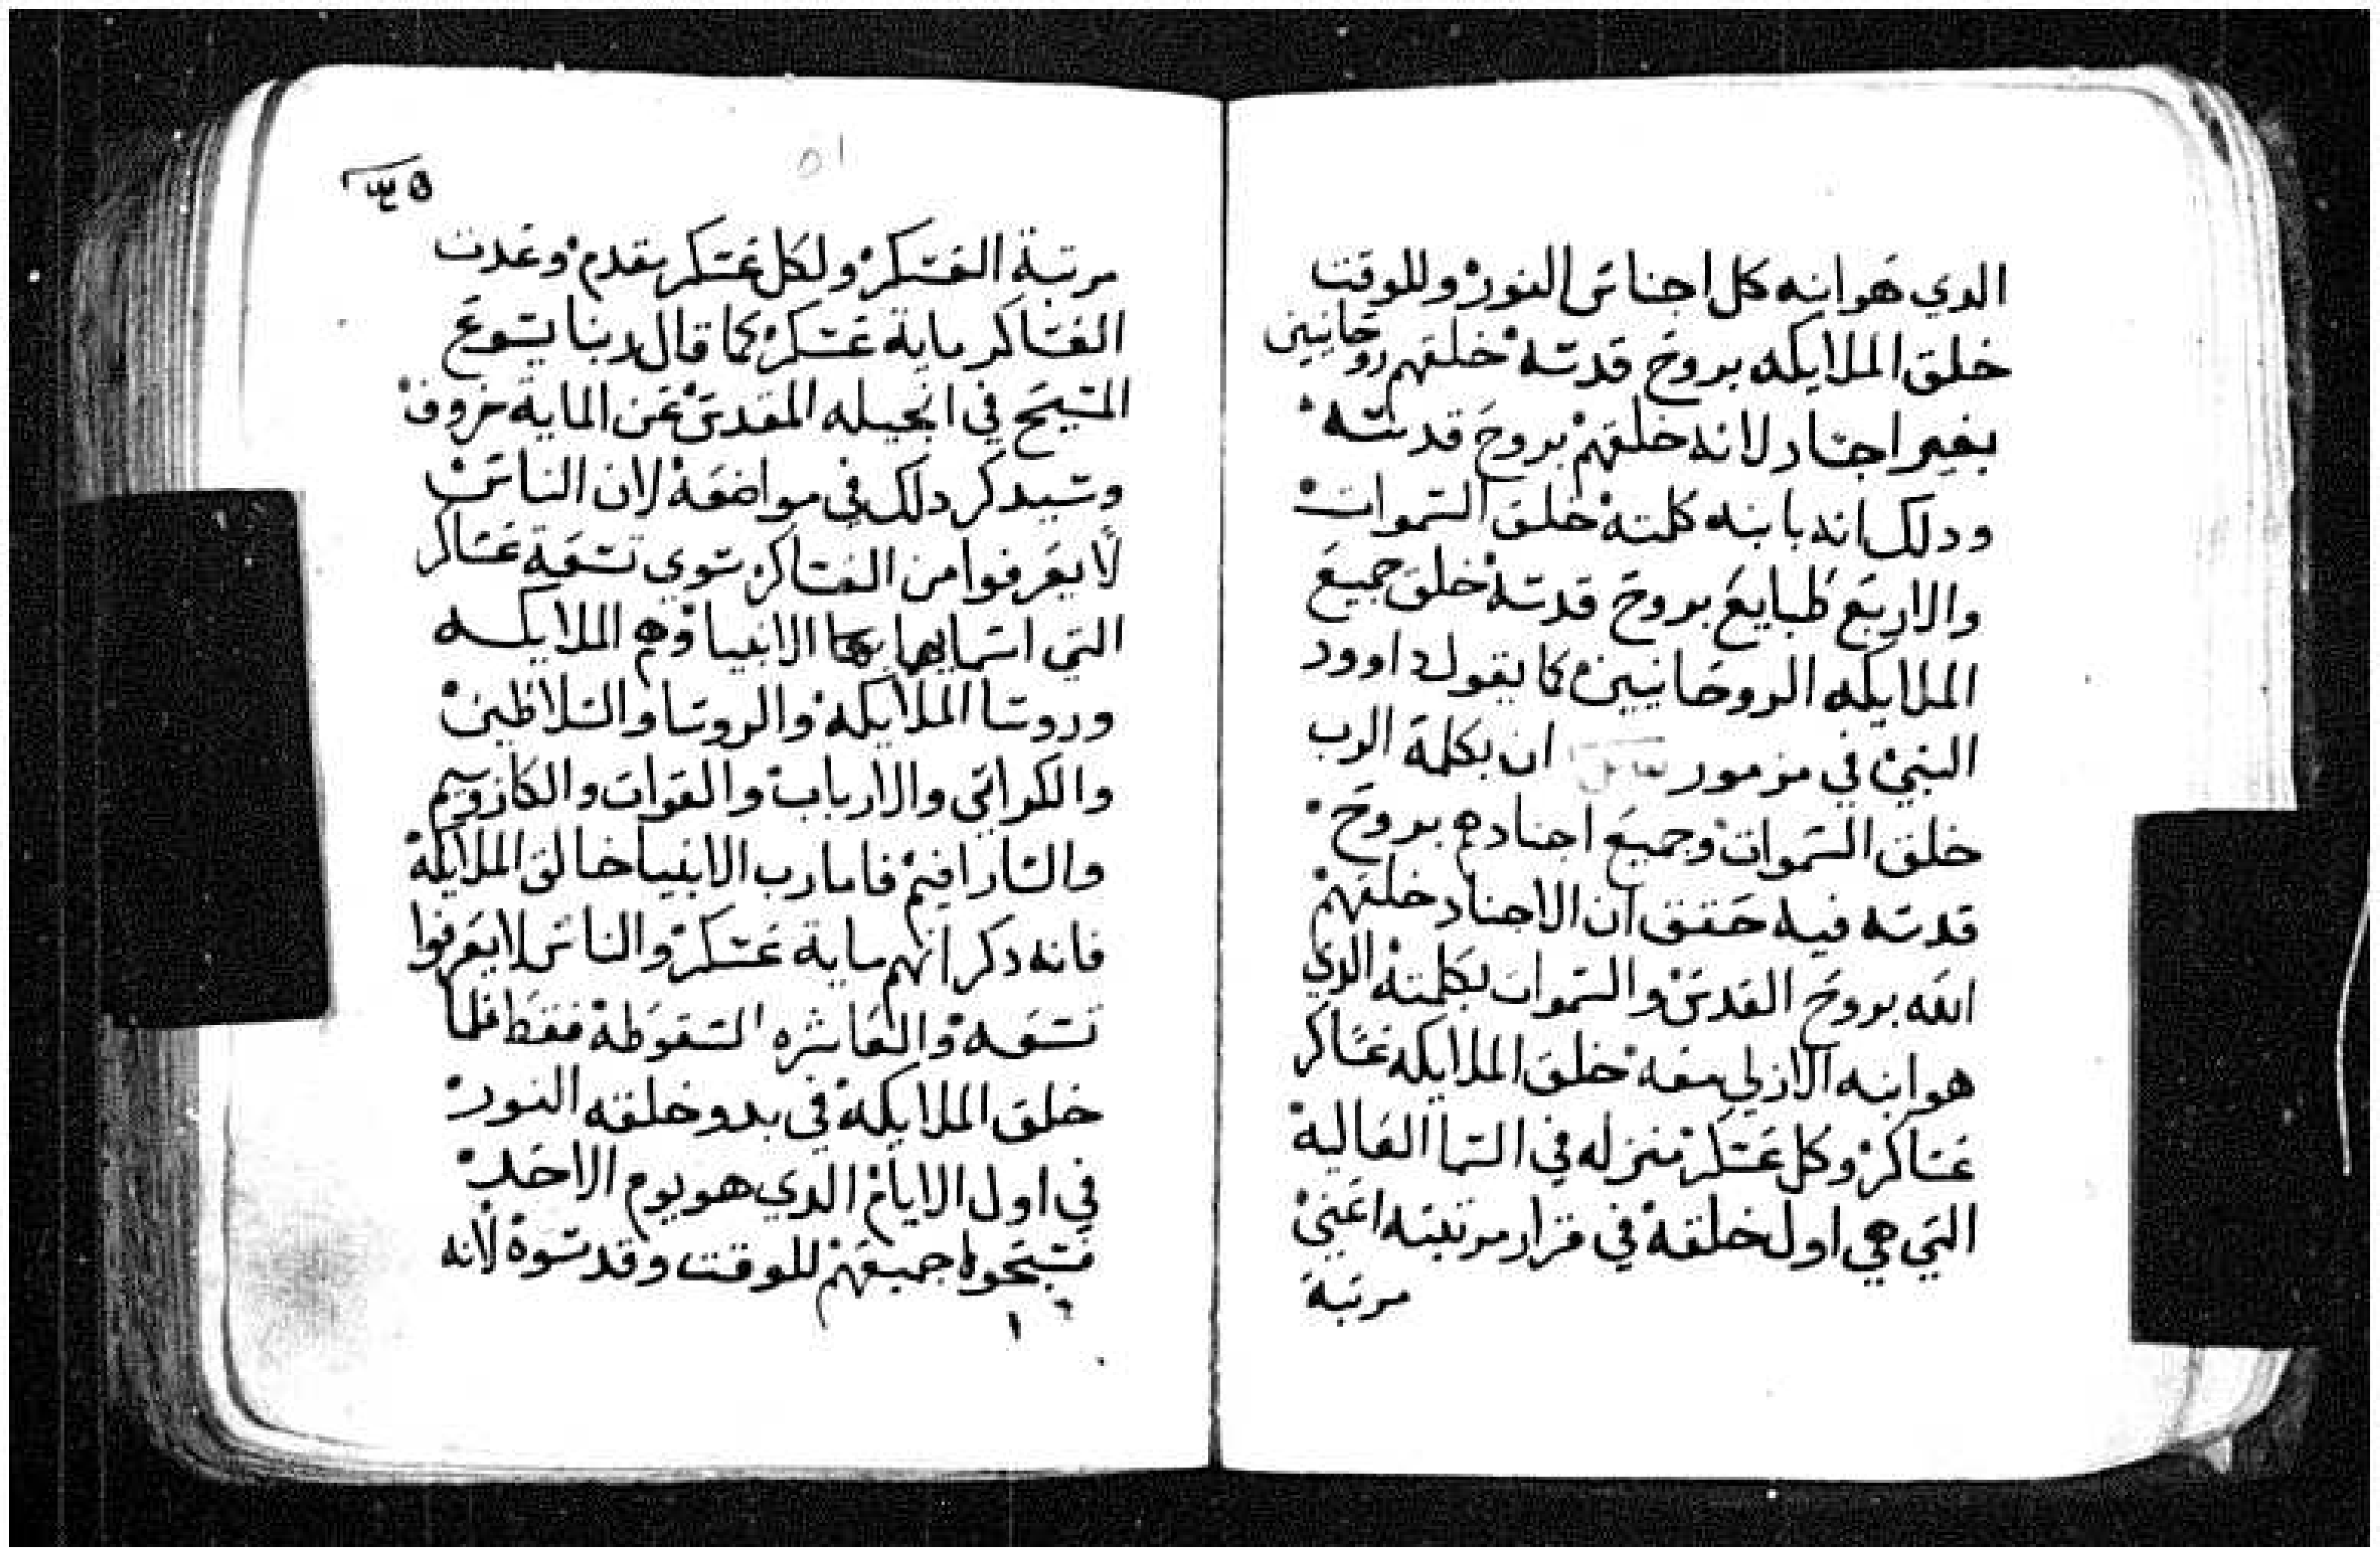 الدي هو ابنه كل اجناس النور وللوقت
خلق الملايكه بروح قدسه خلقهم روحانيين
بغير اجساد لانه خلقهم بروح قدسه
ودلك انه بابنه كلمته خلق السموات
والاربع طبايع بروح قدسه خلق جميع
الملايكه الروحانيين كما يقول داوود
النبي في مزمور ان بكلمة الرب
خلق السموات وجميع اجنادهم بروح
قدسه فيه حقق ان الاجناد خلقهم
الله بروح القدس والسموات بكلمته الدي
هو ابنه الازلي معه خلق الملايكه عساكر
عساكر وكل عسكر منزله في السما العاليه
التي هي اول خلقة في قرار مرتبته اعني
مرتبة
٥١
مرتبة العسكر ولكل عسكر مقدم وعدت
العساكر ماية عسكر كما قال ربنا يسوع
المسيح في انجيله المقدس عن الماية خروف
وسيدكر دلك في مواضعه لان الناس
لا يعرفوا من العساكر سوي تسعة عساكر
التي اسمايها الانبيا وهم الملايكه
وروسا الملايكه والروسا والسلاطين
والكراسي والارباب والقوات والكاروبيم
والسارافيم فاما رب الانبيا خالق الملايكة
فانه دكر انهم ماية عسكر والناس لا يعرفوا
تسعه والعاشره السقوطة فقط فلما
خلق الملايكة في بدو خلقته النور
في اول الايام الدي هو يوم الاحد
فسبحوه جميعهم للوقت وقدسوه لانه